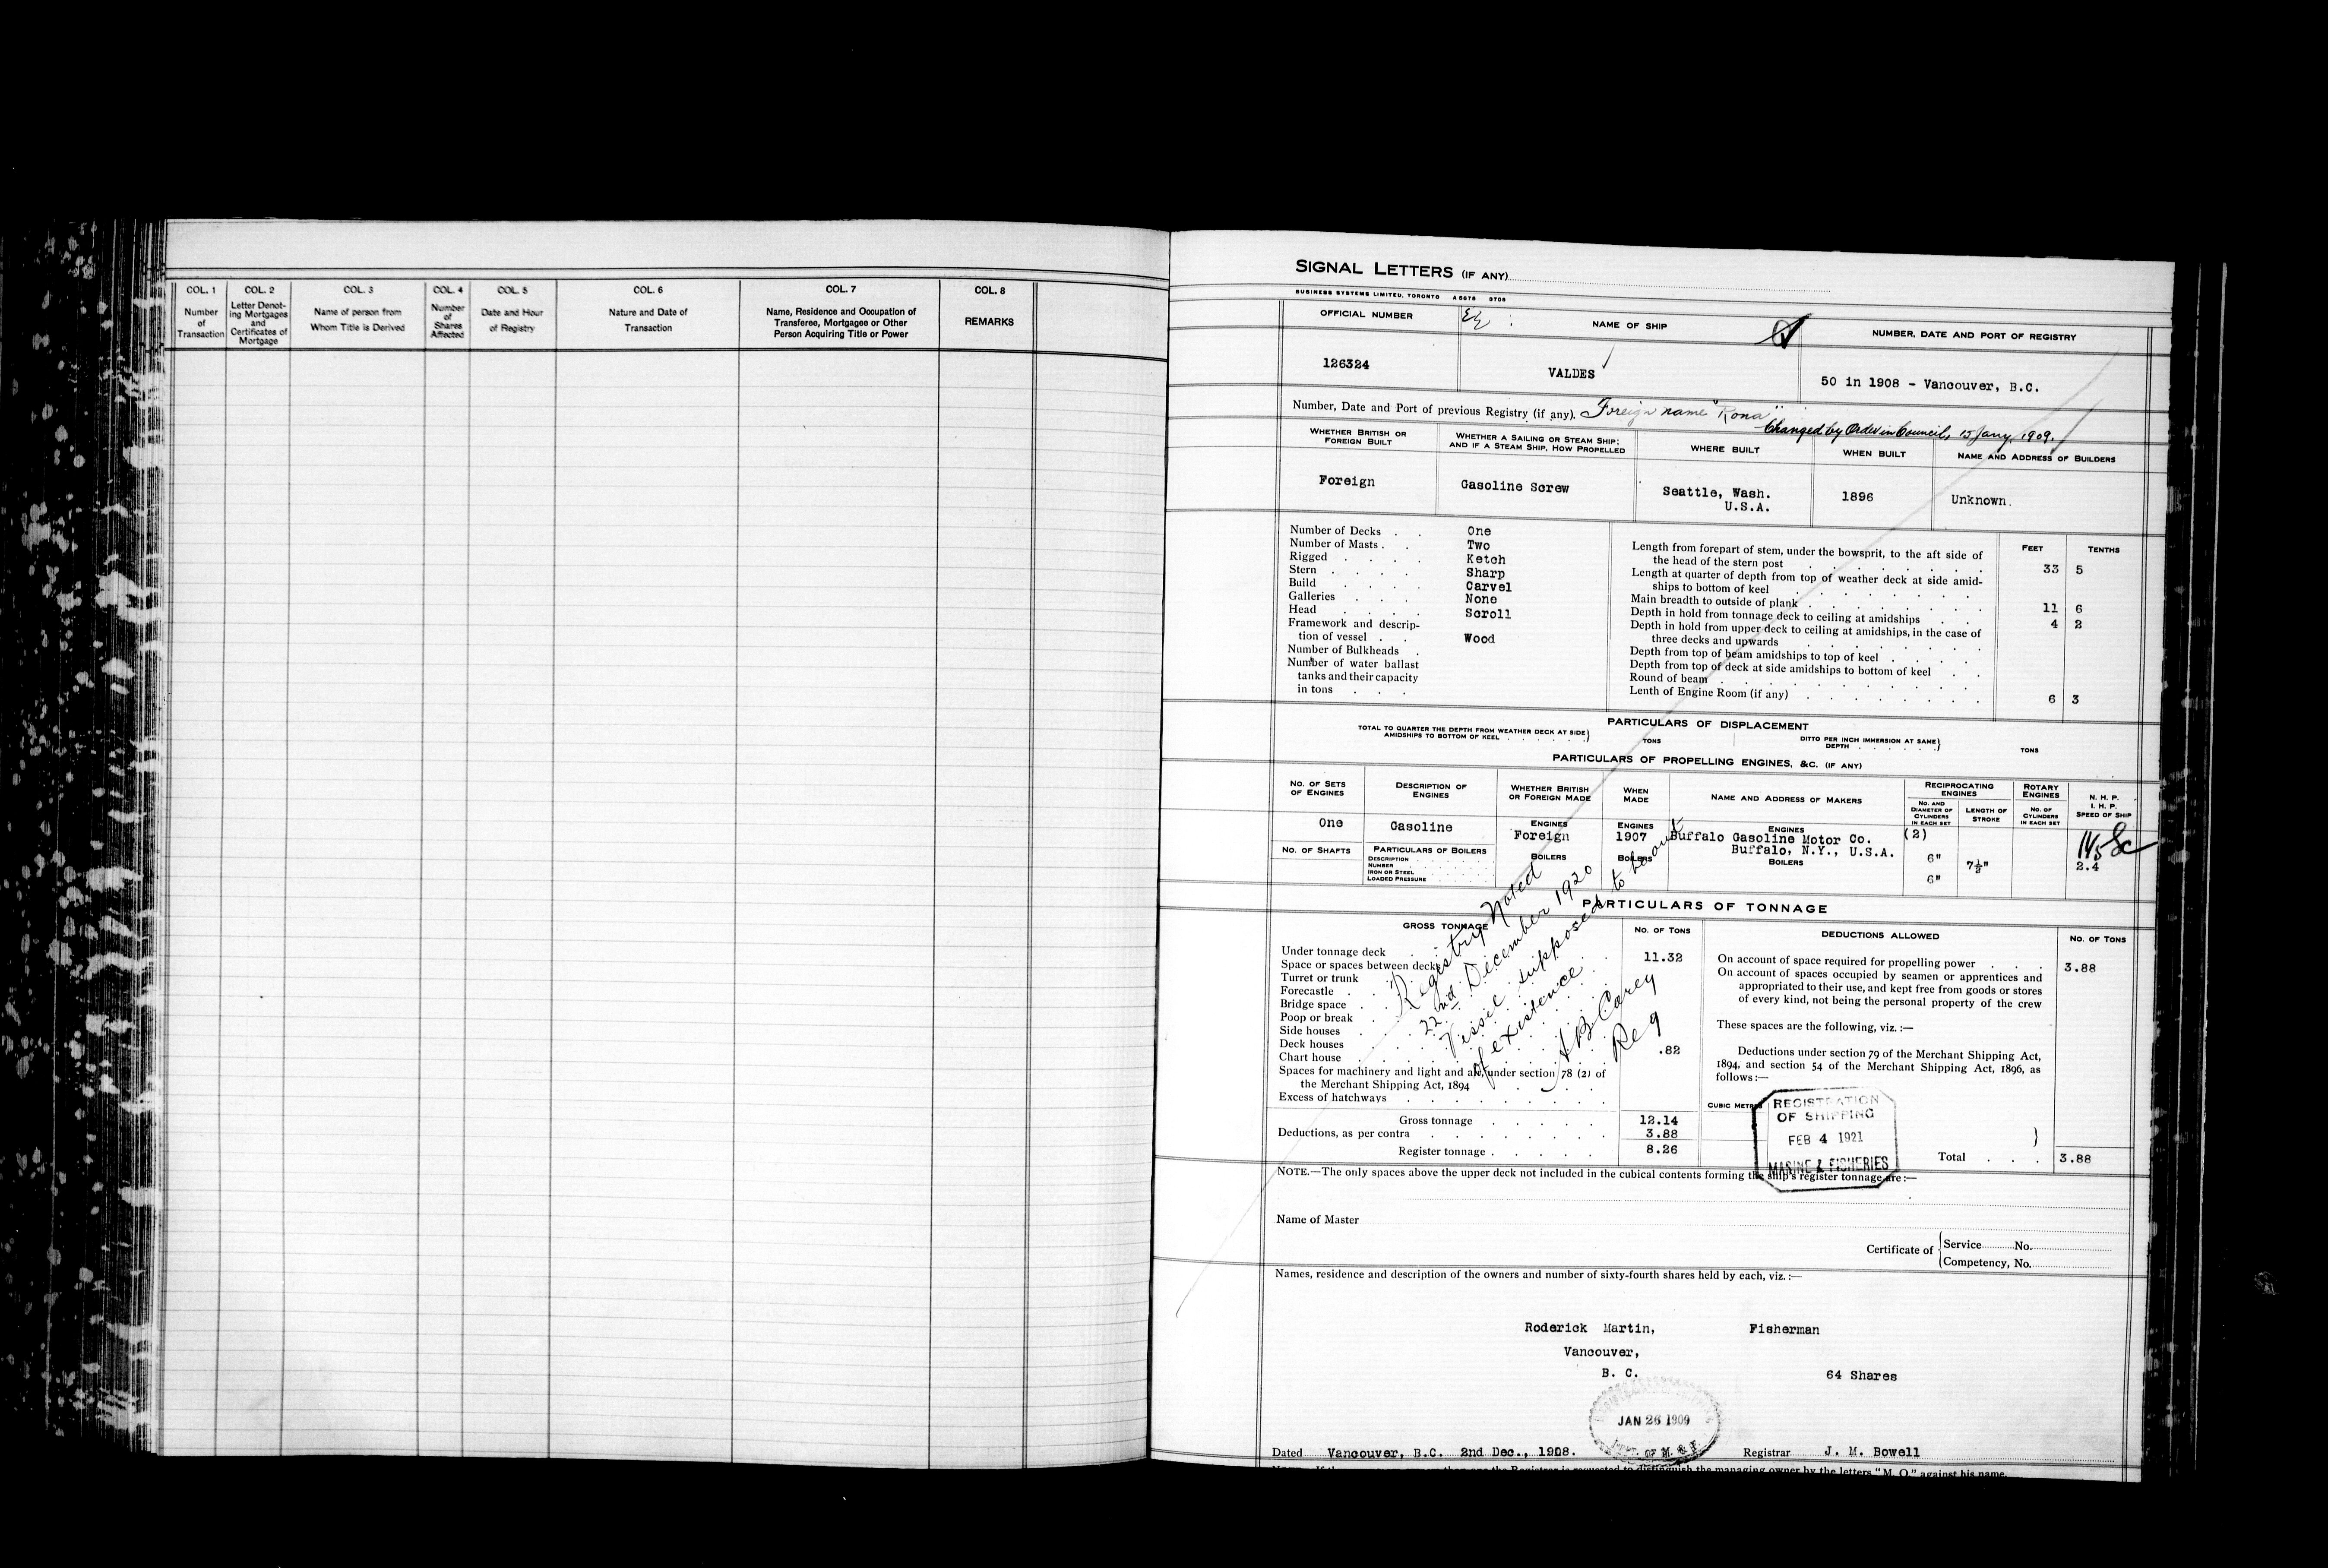 COL. 1
Number
of
Transaction
COL. 2
Letter Denot-
ing Mortgages
and
Certificates of
Mortgage
COL. 3
Name of person from
Whom Title is Derived
COL. 4
Number
of
Shares
Affected
COL. 5
Date and Hour
of Registry
COL. 6
Nature and Date of
Transaction
COL. 7
Name, Residence and Occupation of
Transferee, Mortgagee or Other
Person Acquiring Title or Power
COL. 8
REMARKS
SIGNAL LETTERS (IF ANY)
BUSINESS SYSTEMS LIMITED, TORONTO A5678 3708
OFFICIAL NUMBER
NAME OF SHIP
NUMBER, DATE AND PORT OF REGISTRY
126324
VALDES
50 in 1908 - Vancouver, B.C.
Number, Date and Port of previous Registry (if any). Foreign name "Rona"
Changed by Order in Council, 15 Jany, 1909.
WHETHER BRITISH OR
FOREIGN BUILT
WHETHER A SAILING OR STEAM SHIP;
AND IF A STEAM SHIP, HOW PROPELLED
WHERE BUILT
WHEN BUILT
NAME AND ADDRESS OF BUILDERS
Foreign
Gasoline Screw
Seattle, Wash.
U.S.A.
1896
Unknown.
Number of Decks . . One
Number of Masts . . Two
Rigged . . . . Ketch
Stern . . . . Sharp
Build . . . . Carvel
Galleries . . . None
Head . . . . Scroll
Framework and descrip-
tion of vessel . . Wood
Number of Bulkheads .
Number of water ballast
tanks and their capacity
in tons . . .
FEET TENTHS
Length from forepart of stem, under the bowsprit, to the aft side of
the head of the stern post 33 5
Length at quarter of depth from top of weather deck at side amid-
ships to bottom of keel
Main breadth to outside of plank 11 6
Depth in hold from tonnage deck to ceiling at amidships 4 2
Depth in hold from upper deck to ceiling at amidships, in the case of
three decks and upwards
Depth from top of beam amidships to top of keel
Depth from top of deck at side amidships to bottom of keel
Round of beam
Lenth of Engine Room (if any) 6 3
PARTICULARS OF DISPLACEMENT
TOTAL TO QUARTER THE DEPTH FROM WEATHER DECK AT SIDE
AMIDSHIPS TO BOTTOM OF KEEL
TONS
DITTO PER INCH IMMERSION AT SAME
DEPTH
TONS
PARTICULARS OF PROPELLING ENGINES, &C. (IF ANY)
NO. OF SETS
OF ENGINES
DESCRIPTION OF
ENGINES
WHETHER BRITISH
OR FOREIGN MADE
WHEN
MADE
NAME AND ADDRESS OF MAKERS
RECIPROCATING
ENGINES
NO. AND
DIAMETER OF
CYLINDERS
IN EACH SET
LENGTH OF
STROKE
ROTARY
ENGINES
NO. OF
CYLINDERS
IN EACH SET
N. H. P.
I. H. P.
SPEED OF SHIP
One
Gasoline
ENGINES
Foreign
ENGINES
1907
ENGINES
Buffalo Gasoline Motor Co.
Buffalo, N.Y., U.S.A.
(2)
6"
6"
7½"
2.4
NO. OF SHAFTS
PARTICULARS OF BOILERS
DESCRIPTION
NUMBER
IRON OR STEEL
LOADED PRESSURE
BOILERS
BOILERS
BOILERS
PARTICULARS OF TONNAGE
GROSS TONNAGE
NO. OF TONS
DEDUCTIONS ALLOWED
NO. OF TONS
Under tonnage deck 11.32
Space or spaces between decks
Turret or trunk
Forecastle
Bridge space
Poop or break
Side houses
Deck houses
Chart house .82
Spaces for machinery and light and air, under section 78 (2) of
the Merchant Shipping Act, 1894
Excess of hatchways
Gross tonnage 12.14
Deductions, as per contra 3.88
Register tonnage 8.26
Registry Noted
22nd December 1920
Vessel supposed to be out
of existence
HB Carey
Reg
On account of space required for propelling power . . . 3.88
On account of spaces occupied by seamen or apprentices and
appropriated to their use, and kept free from goods or stores
of every kind, not being the personal property of the crew
These spaces are the following, viz. :—
Deductions under section 79 of the Merchant Shipping Act,
1894, and section 54 of the Merchant Shipping Act, 1896, as
follows :—
CUBIC METRES
REGISTRATION
OF SHIPPING
FEB 4 1921
MARINE & FISHERIES
Total . . . 3.88
NOTE.—The only spaces above the upper deck not included in the cubical contents forming the ship's register tonnage are :—
Name of Master
Certificate of
Service No.
Competency, No.
Names, residence and description of the owners and number of sixty-fourth shares held by each, viz. :—
Roderick Martin, Fisherman
Vancouver,
B. C. 64 Shares
JAN 26 1909
DEPT. OF M. & F.
Dated Vancouver, B.C. 2nd Dec., 1908. Registrar J. M. Bowell
the Registrar is requested to distinguish the managing owner by the letters "M. O." against his name.